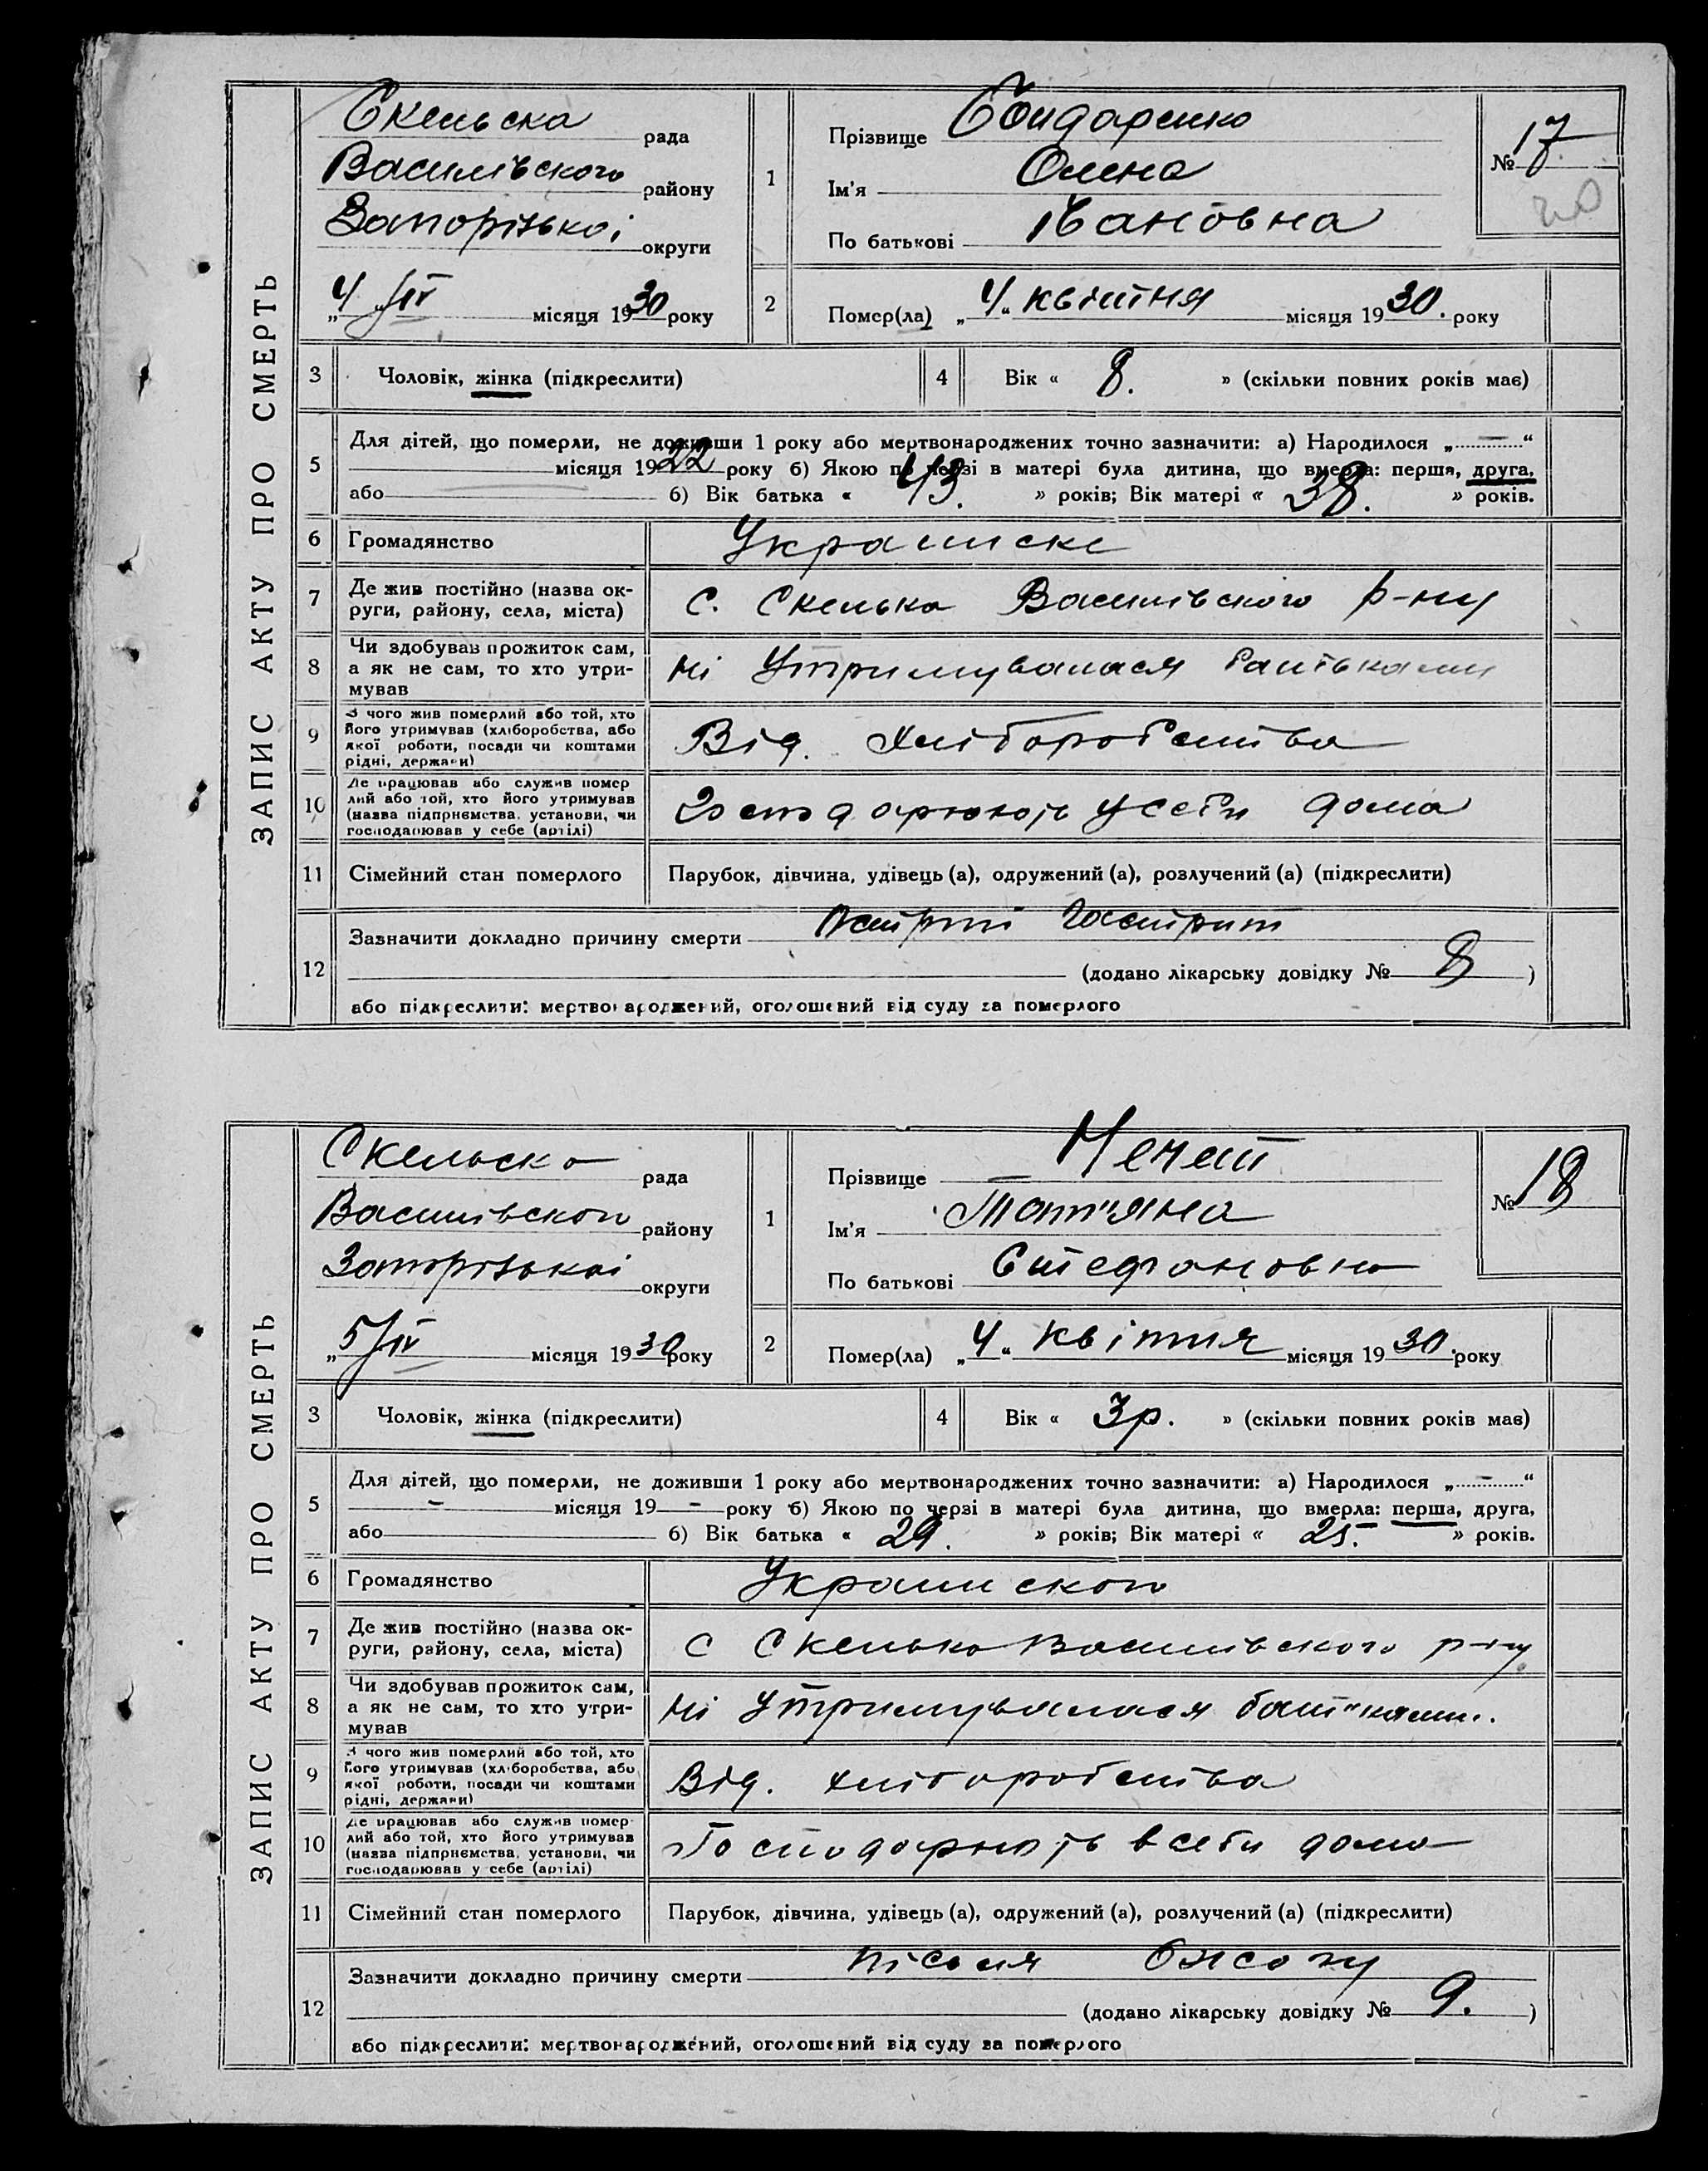 ЗАПИС АКТУ ПРО СМЕРТЬ
Скельска рада
Василівского району
Запорізькоі округи
„4/IV місяця 1930 року
1
Прізвище Бондаренко
Ім'я Олена
По батькові Івановна
№ 17
20
2
Помер(ла) „4“ квітня місяця 1930. року
3
Чоловік, жінка (підкреслити)
4
Вік « 8. » (скільки повних років має)
5
Для дітей, що померли, не доживши 1 року або мертвонароджених точно зазначити: а) Народилося „ — “
місяця 1922 року б) Якою по черзі в матері була дитина, що вмерла: перша, друга,
або б) Вік батька « 43. » років; Вік матері « 38. » років.
6
Громадянство
Украинске
7
Де жив постійно (назва ок-
руги, району, села, міста)
с. Скелька Василівского р-ну
8
Чи здобував прожиток сам,
а як не сам, то хто утри-
мував
Ні Утримувалася батьками
9
З чого жив померлий або той, хто
його утримував (хліборобства, або
якої роботи, посади чи коштами
рідні, держави)
Від. Хліборобства
10
Де працював або служив помер
лий або той, хто його утримував
(назва підприємства, установи, чи
господарював у себе (артілі)
Господарюють у себи дома
11
Сімейний стан померлого
Парубок, дівчина, удівець (а), одружений (а), розлучений (а) (підкреслити)
12
Зазначити докладно причину смерти гастрит
(додано лікарську довідку № 8 )
або підкреслити: мертвонароджений, оголошений від суду за померлого
ЗАПИС АКТУ ПРО СМЕРТЬ
Скельска рада
Василівского району
Запорізькоі округи
„5/IV місяця 1930 року
1
Прізвище Мечет
Ім'я Тат'яна
По батькові Стефановна
№ 18
2
Помер(ла) „4“ квітня місяця 1930. року
3
Чоловік, жінка (підкреслити)
4
Вік « 3р. » (скільки повних років має)
5
Для дітей, що померли, не доживши 1 року або мертвонароджених точно зазначити: а) Народилося „ - “
- місяця 19 - року б) Якою по черзі в матері була дитина, що вмерла: перша, друга,
або б) Вік батька « 29. » років; Вік матері « 25. » років.
6
Громадянство
Украинского
7
Де жив постійно (назва ок-
руги, району, села, міста)
с Скелька Василівского р-ну
8
Чи здобував прожиток сам,
а як не сам, то хто утри-
мував
Ні Утримувалася бат"ками.
9
З чого жив померлий або той, хто
його утримував (хліборобства, або
якої роботи, посади чи коштами
рідні, держави)
Від. хліборобства
10
Де працював або служив помер-
лий або той, хто його утримував
(назва підприємства, установи, чи
господарював у себе (артілі)
Господарюють в себи дома
11
Сімейний стан померлого
Парубок, дівчина, удівець (а), одружений (а), розлучений (а) (підкреслити)
12
Зазначити докладно причину смерти після Ожогу
(додано лікарську довідку № 9. )
або підкреслити: мертвонароджений, оголошений від суду за померлого